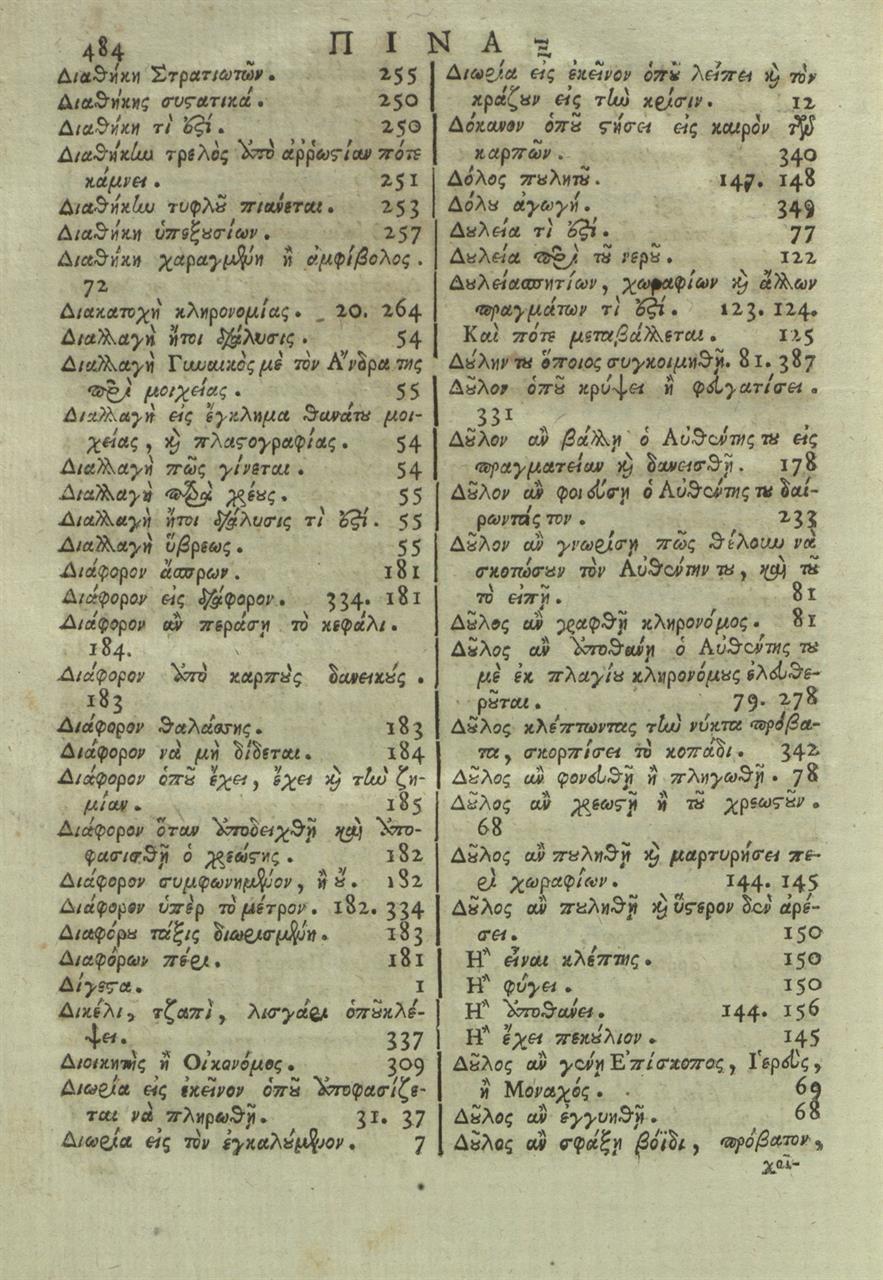 484 ΠΙΝΑΞ
Διαθήκη Στρατιωτῶν. 255
Διαθήκης συςατικά. 250
Διαθήκη τὶ ἐςί. 250
Διαθήκην τρελὸς ἀπὸ ἀῤῥωςίαν πότε
κάμνει. 251
Διαθήκην τυφλοῦ πιάνεται. 253
Διαθήκη ὑπεξουσίων. 257
Διαθήκη χαραγμένη ἢ ἀμφίβολος.
72
Διακατοχὴ κληρονομίας. 20. 264
Διαλλαγὴ ἤτοι διάλυσις. 54
Διαλλαγὴ Γυναικὸς μὲ τὸν Ἄνδρα της
περὶ μοιχείας. 55
Διαλλαγὴ εἰς ἔγκλημα θανάτου μοι-
χείας, καὶ πλαςογραφίας. 54
Διαλλαγὴ πῶς γίνεται. 54
Διαλλαγὴ περὶ χρέους. 55
Διαλλαγὴ ἤτοι διάλυσις τὶ ἐςί. 55
Διαλλαγὴ ὕβρεως. 55
Διάφορον ἄσπρων. 181
Διάφορον εἰς διάφορον. 334. 181
Διάφορον ἂν περάσῃ τὸ κεφάλι.
184.
Διάφορον ἀπὸ καρποὺς δανεικούς.
183
Διάφορον θαλάσσης. 183
Διάφορον νὰ μὴ δίδεται. 184
Διάφορον ὁποῦ ἔχει, ἔχει καὶ τὴν ζη-
μίαν. 185
Διάφορον ὅταν ἀποδειχθῇ καὶ ἀπο-
φασισθῇ ὁ χρεώςης. 182
Διάφορον συμφωνημένον, ἢ οὔ. 182
Διάφορον ὑπὲρ τὸ μέτρον. 182. 334
Διαφόρου τάξις διωρισμένη. 183
Διαφόρων πέρι. 181
Δίγεςα. 1
Δικέλι, τζαπὶ, λισγάρι ὁποῦ κλέ-
ψει. 337
Διοικητὴς ἢ Οἰκονόμος. 309
Διωρία εἰς ἐκεῖνον ὁποῦ ἀποφασίζε-
ται νὰ πληρωθῇ. 31. 37
Διωρία εἰς τὸν ἐγκαλούμενον. 7
Διωρία εἰς ἐκεῖνον ὁποῦ λείπει καὶ τὸν
κράζουν εἰς τὴν κρίσιν. 12
Δόκανον ὁποῦ ςήσει εἰς καιρὸν τῶν
καρπῶν. 340
Δόλος πουλητοῦ. 147. 148
Δόλου ἀγωγή. 349
Δουλεία τὶ ἐςί. 77
Δουλεία περὶ τοῦ νεροῦ. 122
Δουλεία σπητίων, χωραφίων καὶ ἄλλων
πραγμάτων τὶ ἐςί. 123. 124.
Καὶ πότε μεταβάλλεται. 125
Δούλην του ὅποιος συγκοιμηθῇ. 81. 387
Δοῦλον ὁποῦ κρύψει ἢ φευγατίσει.
331
Δοῦλον ἂν βάλλῃ ὁ Αὐθέντης του εἰς
πραγματείαν καὶ δανεισθῇ. 178
Δοῦλον ἂν φονεύσῃ ὁ Αὐθέντης του δαί-
ρωντάς τον. 233
Δοῦλον ἂν γνωρίσῃ πῶς θέλουν νὰ
σκοτώσουν τὸν Αὐθέντην του, καὶ τοῦ
τὸ εἰπῇ. 81
Δοῦλος ἂν γραφθῇ κληρονόμος. 81
Δοῦλος ἂν ἀποθανῃ ὁ Αὐθέντης του
μὲ ἐκ πλαγίου κληρονόμους ἐλευθε-
ροῦται. 79. 278
Δοῦλος κλέπτωντας τὴν νύκτα πρόβα-
τα, σκορπίσει τὸ κοπάδι. 342
Δοῦλος ἂν φονευθῇ ἢ πληγωθῇ. 78
Δοῦλος ἂν χρεωςῇ ἢ τοῦ χρεωςοῦν.
68
Δοῦλος ἂν πουληθῇ καὶ μαρτυρήσει πε-
ρὶ χωραφίων. 144. 145
Δοῦλος ἂν πουληθῇ καὶ ὕςερον δὲν ἀρέ-
σει. 150
Ἢ εἶναι κλέπτης. 150
Ἢ φύγει. 150
Ἢ ἀποθάνει. 144. 156
Ἢ ἔχει πεκούλιον. 145
Δοῦλος ἂν γένῃ Ἐπίσκοπος, Ἱερεὺς,
ἢ Μοναχός. 69
Δοῦλος ἂν ἐγγυηθῇ. 68
Δοῦλος ἂν σφάξῃ βόϊδι, πρόβατον,
καὶ-